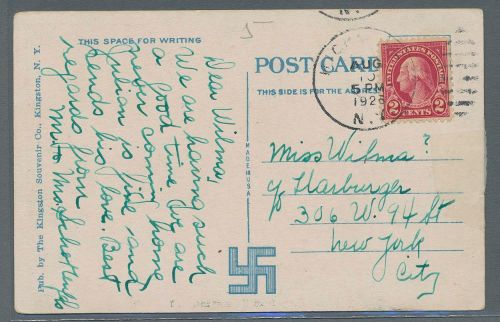 THIS SPACE FOR WRITING
Dear Wilma,
We are having such
a good time we are
never coming home
Julian is fine, and
sends his love. Best
regards from
Pub. by The Kingston Souvenir Co., Kingston, N. Y.
MADE IN U.S.A.
POST CARD
THIS SIDE IS FOR THE ADDRESS
AUG
5 PM
N.Y.
UNITED STATES POSTAGE
2 CENTS 2
Miss Wilma ?
Harburger
306 W. 94 St
New York
City